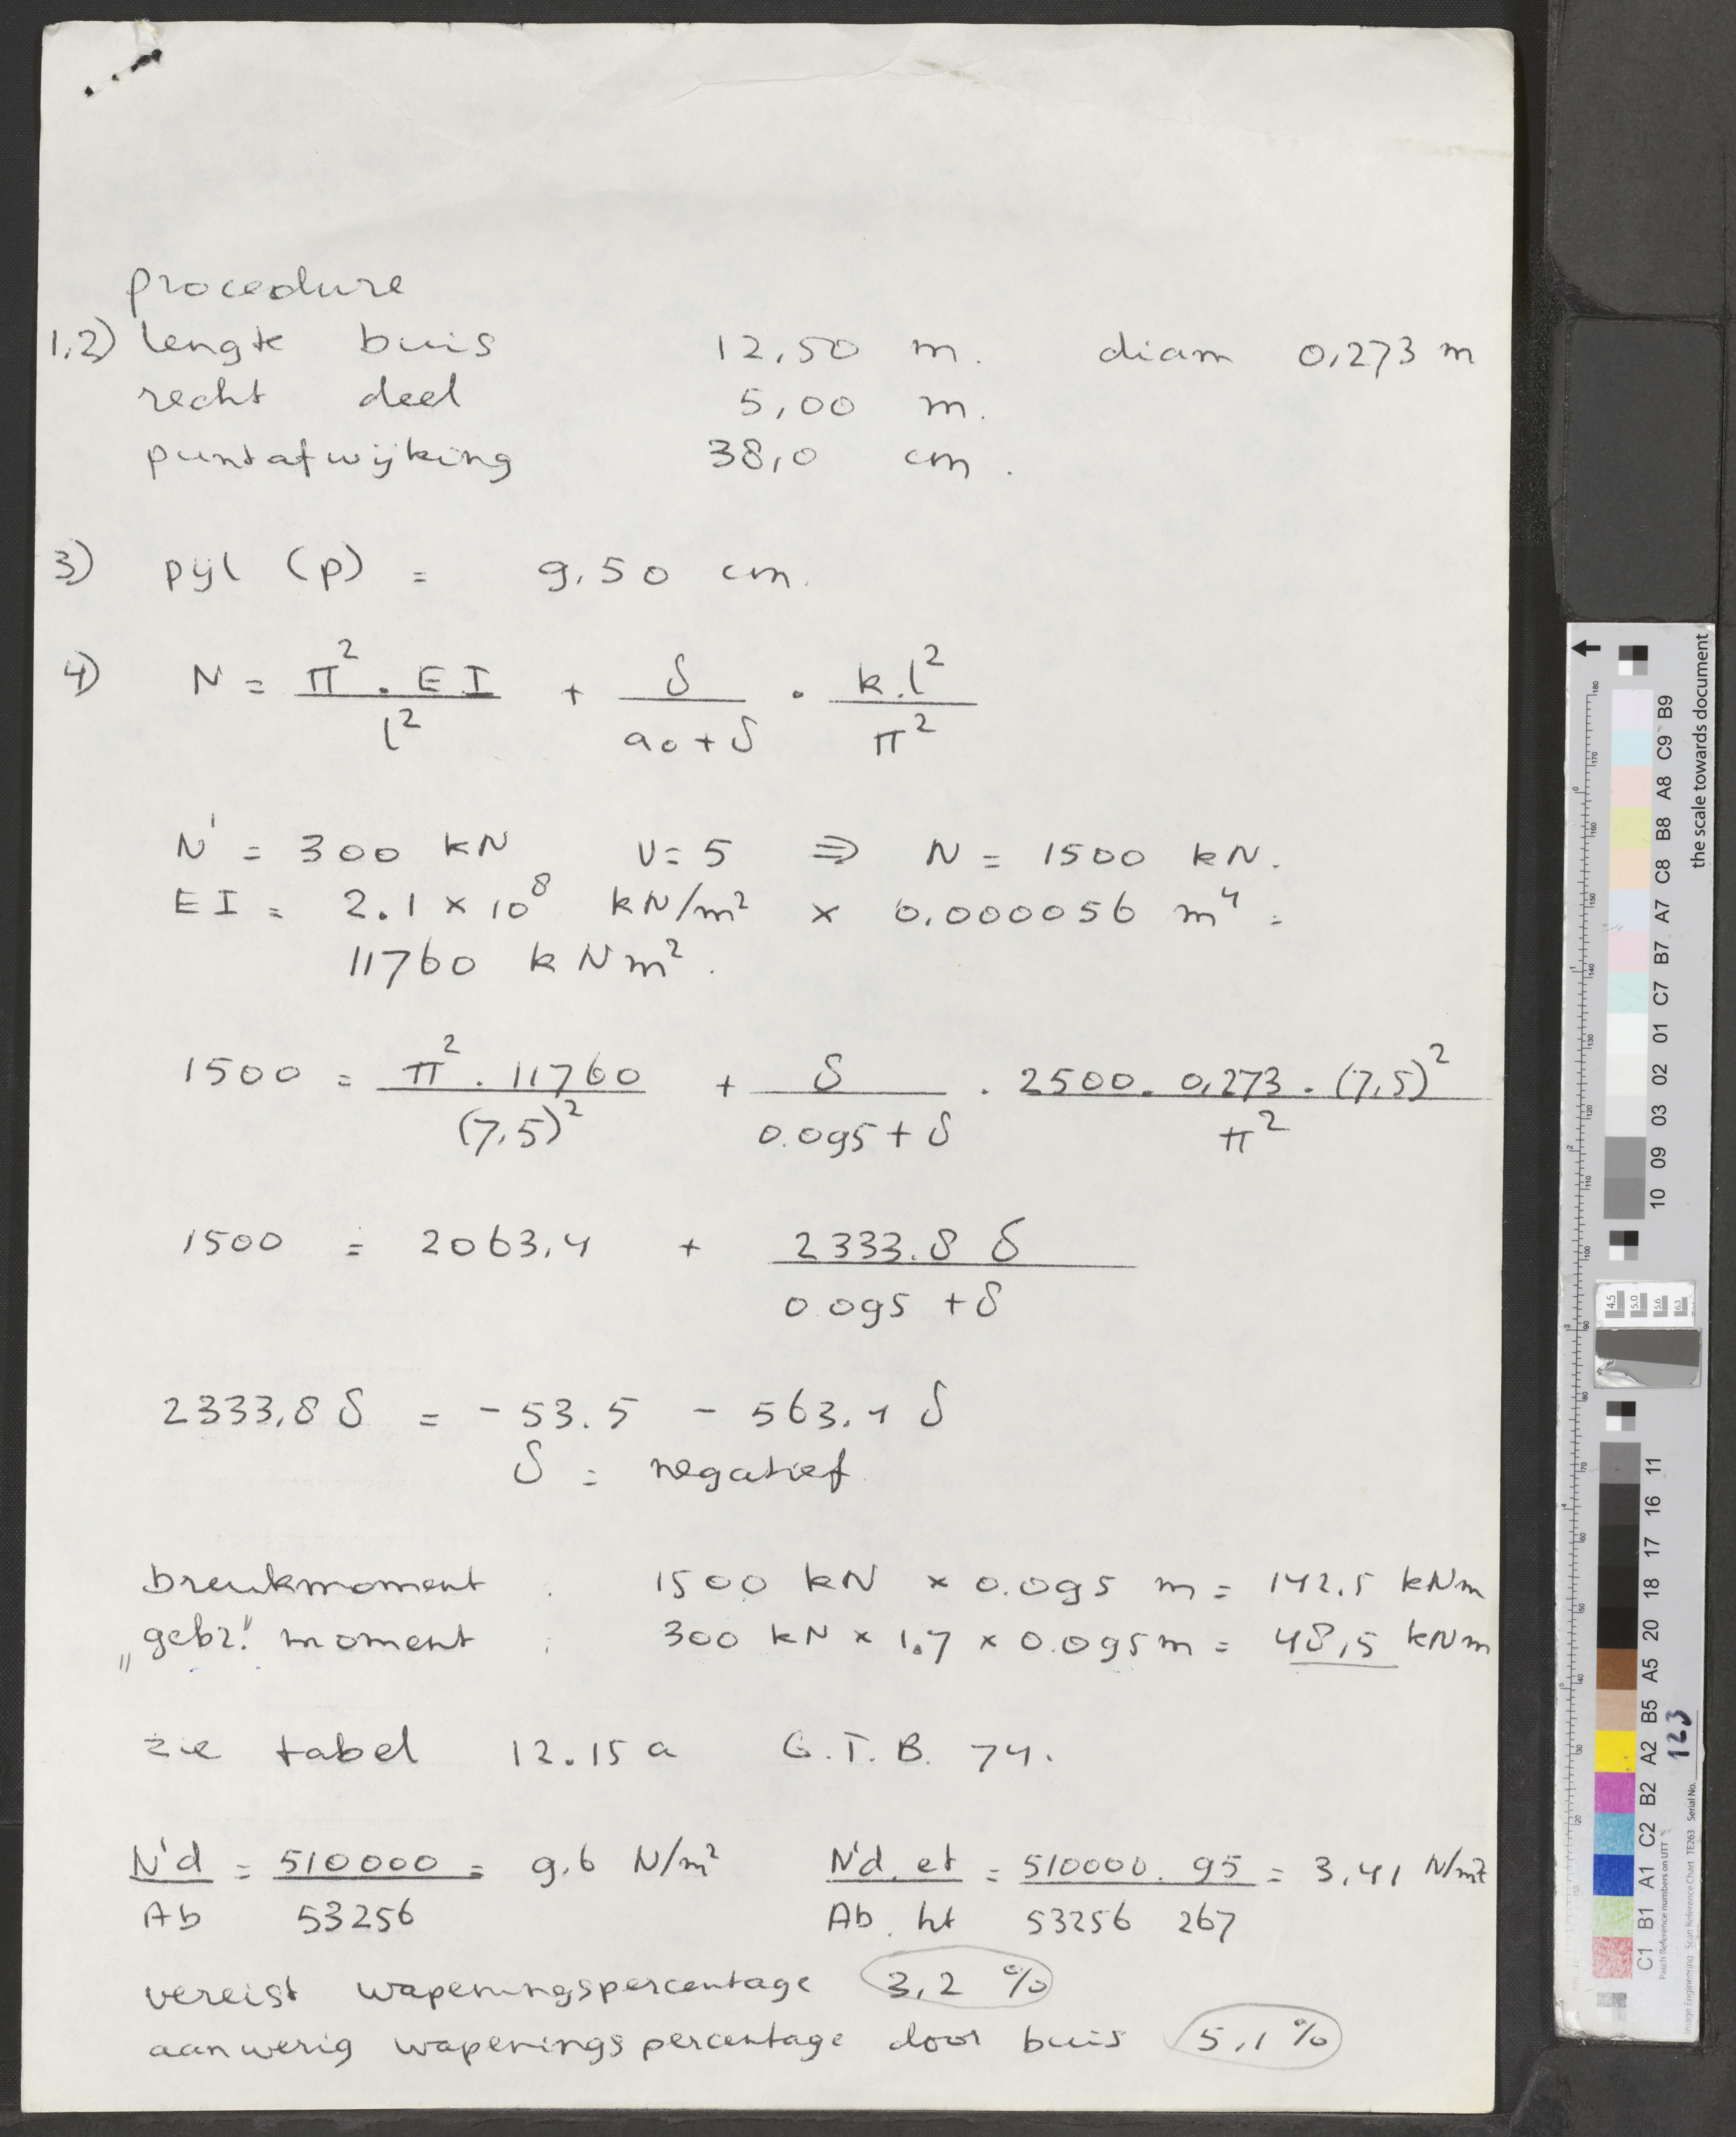 procedure
1.2) lengte buis 12,50 m. diam 0,273 m
recht deel 5,00 m.
puntafwijking 38,0 cm.
3) pijl (p) = 9.50 cm.
4) N = π². EI / l² + δ / a0+δ . k.l² / π²
N' = 300 kN V=5 ⇒ N = 1500 kN.
EI = 2.1 × 10⁸ kN/m² × 0.000056 m⁴ =
11760 kNm².
1500 = π². 11760 / (7,5)² + δ / 0.095+δ . 2500. 0,273. (7,5)² / π²
1500 = 2063,4 + 2333.8 δ / 0.095 + δ
2333,8 δ = - 53.5 - 563.4 δ
δ = negatief.
breukmoment : 1500 kN × 0.095 m = 142.5 kNm
„gebr." moment : 300 kN × 1.7 × 0.095m = 48,5 kNm
zie tabel 12.15a G.T.B. 74.
N'd / Ab = 510000 / 53256 = 9.6 N/m² N'd. et / Ab. ht = 510000. 95 / 53256 267 = 3,41 N/m²
vereist wapeningspercentage 3,2 %
aanwezig wapeningspercentage door buis 5,1 %
the scale towards document
B9 C9 A8 B8 C8 A7 B7 C7 01 02 03 09 10
11 16 17 18 20 A5 B5 A2 B2 C2 A1 B1 C1
4.5 5.0 5.6 6.3
Patch Reference numbers on UTT
Image Engineering Scan Reference Chart TE263 Serial No. 123